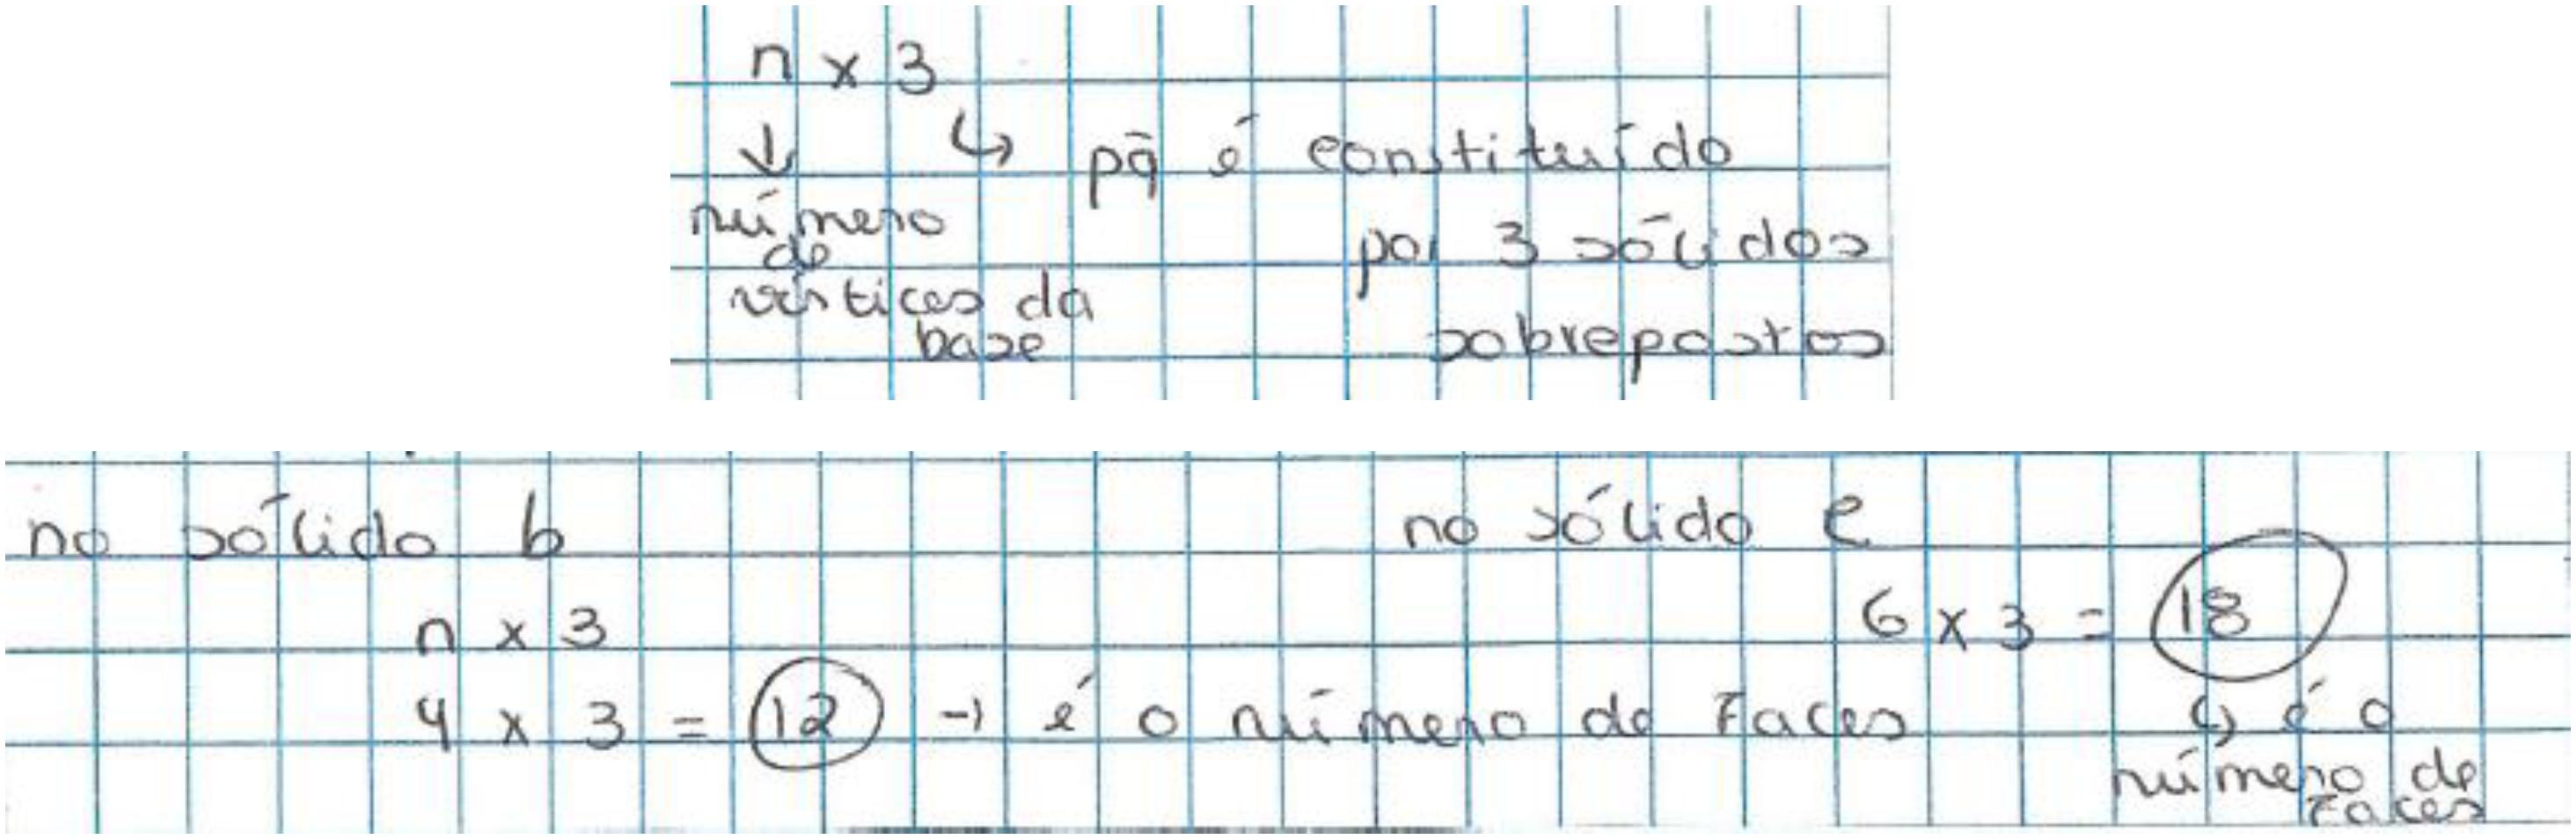 n x 3
↓ ↳ pq̄ é constituído
número
de
por 3 sólidos
vértices da
base
sobrepostos
no sólido b
no sólido e
n x 3
6 x 3 = 18
4 x 3 = 12 → é o número de Faces
↳ é o
número de
Faces